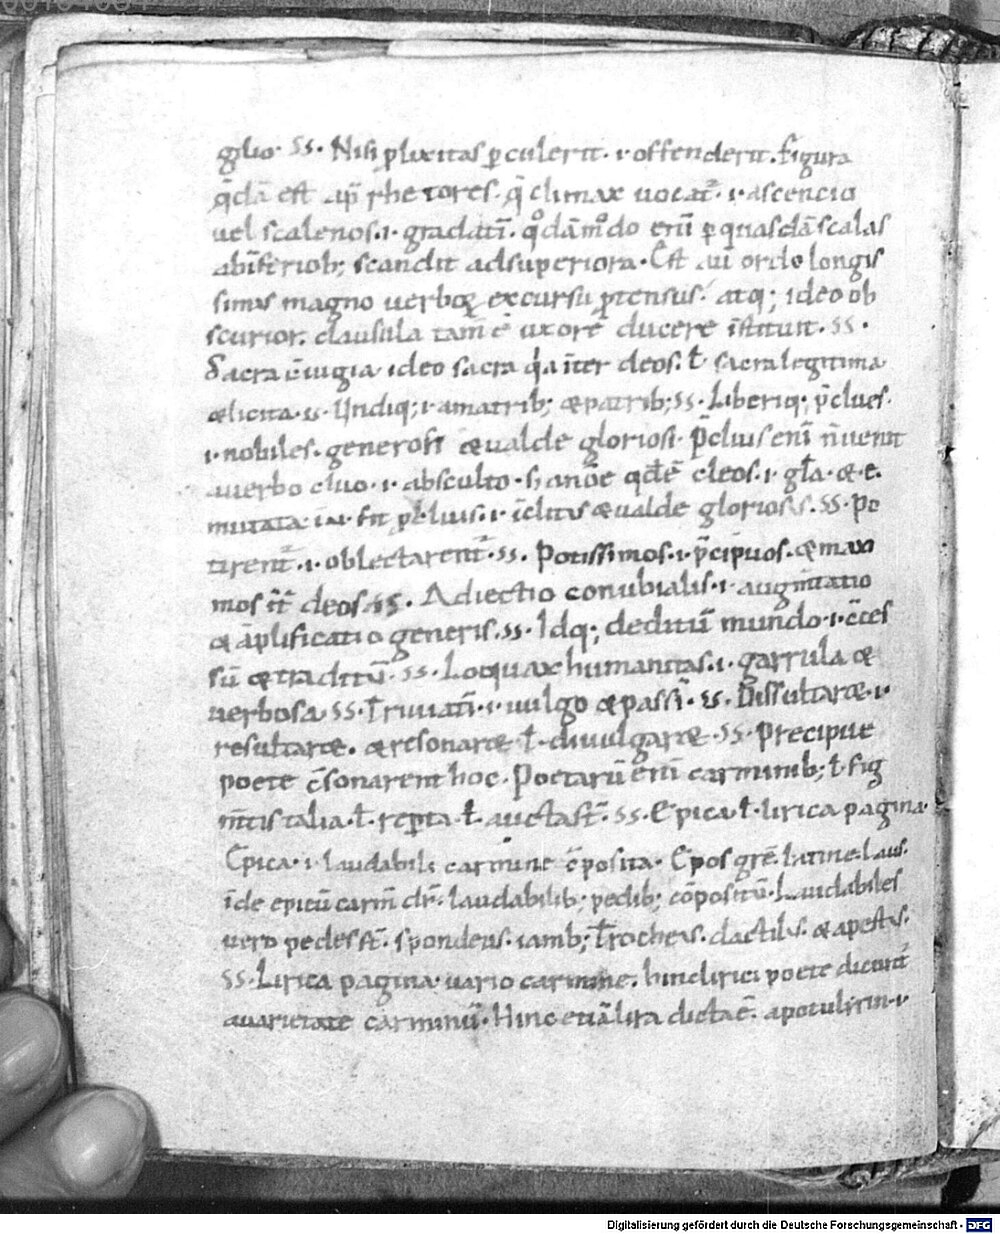 glio. SS. Nisi ꝓlixitas ꝑculerit. .i. offenderit. figura
q̄dā est apͮ rhetores. q̄ climax uocat᷒. .i. ascencio
uel scalenos .i. gradatī. qͦdāmͦdo enī ꝑ quasdā scalas
ab īferiorib; scandit ad superiora. Est aū ordo longis
simus magno uerboꝝ excursu ꝓtensus. atq; ideo ob
scurior. clausula tam̄ ē uxorē ducere īstituit. SS.
Sacra cōiugia ideo sacra qͥa īter deos. ł sacra legitima
& licita. SS. Undiq; .i. a matrib; & patrib; SS. Liberiq; p̄clues.
.i. nobiles. generosi & ualde gloriosi. p̄cluis enī uenit
a uerbo cluo .i. absculto. cleos .i. gła. & e.
mutata in .i. fit p̄cluis .i. īclitus & ualde gloriosus. SS. Po
tirent᷒ .i. oblectarent᷒. SS. Potissimos .i. p̄cipuos. & maxi
mos deos. SS. Adiectio conubialis .i. augm̄tatio
& āplificatio generis. SS. Idq; deditū mundo .i. cōces
sū & traditū. SS. Loquax humanitas .i. garrula &
uerbosa SS. Triuiatī .i. uulgo & passī. SS. Dissultare .i.
resultare. & resonare ł diuulgare. SS. Precipue
poete cōsonarent hoc. Poetarū enī carminib; ł fig
mtīs talia ł repta ł aucta st̄. SS. Epica ł lirica pagina.
Epica .i. laudabili carmine cōposita. Epos grē. latine. laus.
īde epicū carm̄ dr̄. laudabilib; pedib; cōpositū. Laudabiles
uero pedes st̄. spondeus. iamb; trocheus. dactilus. & apestus.
SS. Lirica pagina. uario carmine. hinc lirici poete dicunt᷒
a uarietate carminū. Hinc etiā lira dicta ē. apotulirin .i.
Digitalisierung gefördert durch die Deutsche Forschungsgemeinschaft - DFG